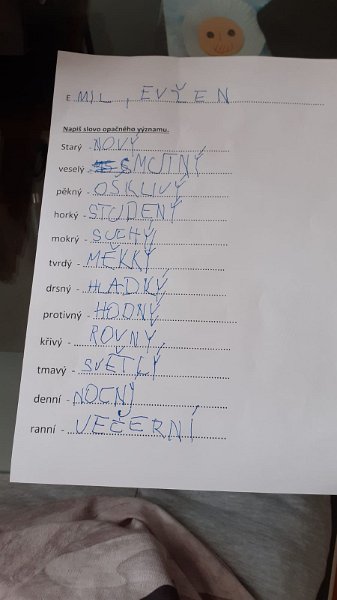 E MIL, EVŽEN
Napiš slovo opačného významu.
Starý - NOVÝ
veselý - SMUTNÝ
pěkný - OŠKLIVÝ
horký - STUDENÝ
mokrý - SUCHÝ
tvrdý - MĚKKÝ
drsný - HLADKÝ
protivný - HODNÝ
křivý - ROVNÝ
tmavý - SVĚTLÝ
denní - NOČNÝ
ranní - VEČERNÍ